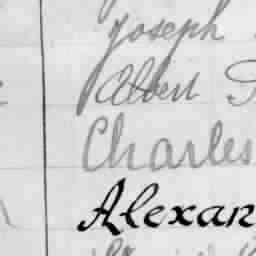 Joseph
Albert
Charles
Alexan